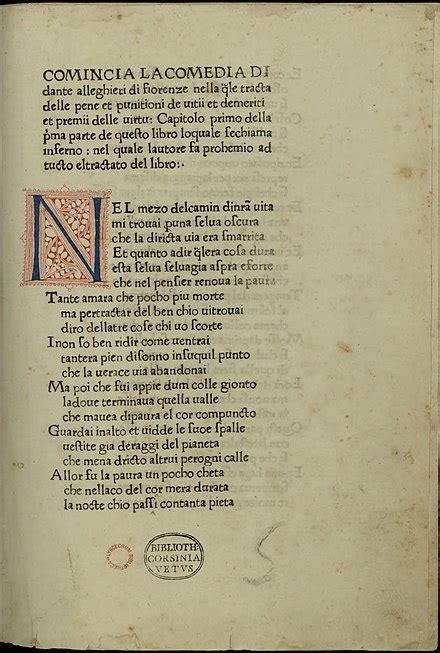 COMINCIA LACOMEDIA DI
dante alleghieri di fiorenze nella q̄le tracta
delle pene et punitioni de uitii et demeriti
et premii delle uirtu: Capitolo primo della
p̄ma parte de questo libro loquale sechiama
inferno: nel quale lautore fa prohemio ad
tucto eltractato del libro:.
NEL mezo delcamin dinrā uita
mi trouai ꝑuna selua oscura
che la diricta uia era smarrita
Et quanto adir q̄lera cosa dura
esta selua seluagia aspra eforte
che nel pensier renoua la paura
Tante amara che pocho piu morte
ma pertractar del ben chio uitrouai
diro dellatre cose chi uo scorte
I non so ben ridir come uentrai
tantera pien disonno insuquil punto
che la uerace uia abandonai
Ma poi che fui appie dum colle gionto
ladoue terminaua quella ualle
che mauea dipaura el cor compuncto
Guardai inalto et uidde le suoe spalle
uestite gia deraggi del pianeta
che mena dricto altrui perogni calle
Allor fu la paura un pocho cheta
che nellaco del cor mera durata
la nocte chio passi contanta pieta
BIBLIOTH:
CORSINIA
VETVS